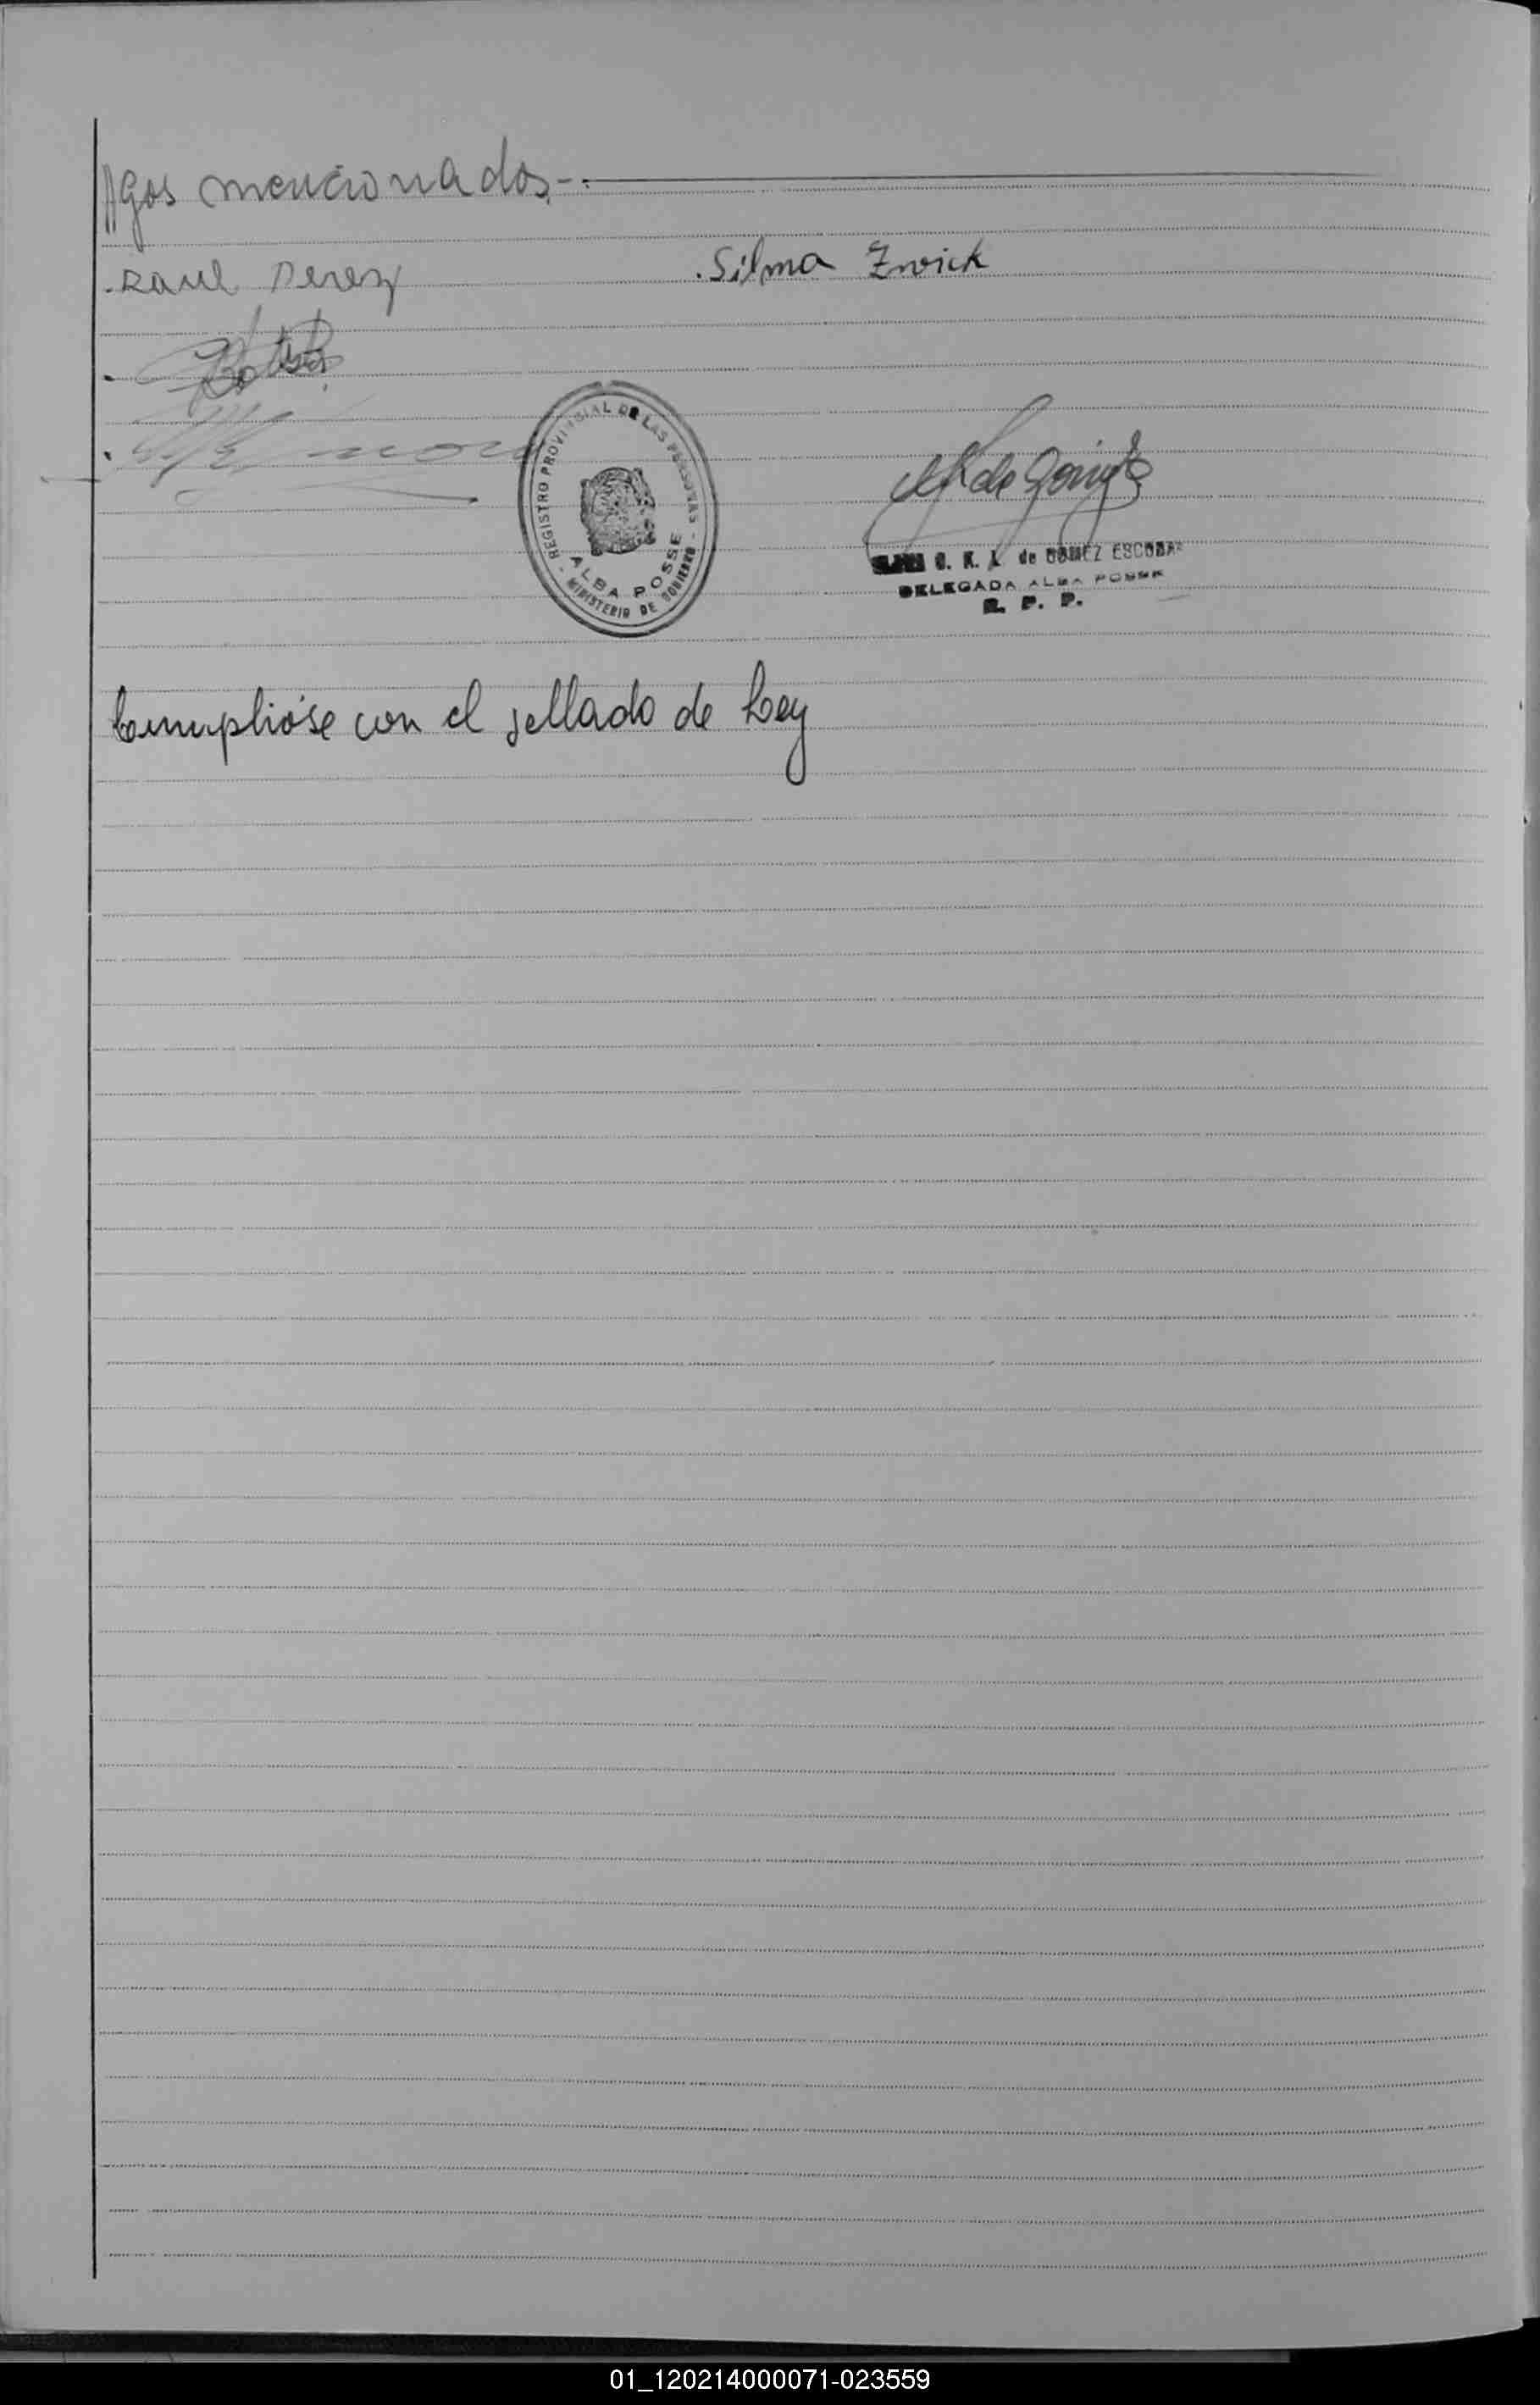 //gos mencionados.-
Raul Perez
Silma Zwick
REGISTRO PROVINCIAL DE LAS PERSONAS
ALBA POSSE
MINISTERIO DE GOBIERNO
de GOMEZ ESCOBAR
DELEGADA ALBA POSSE
R. P. P.
Cumplióse con el sellado de Ley
01_120214000071-023559